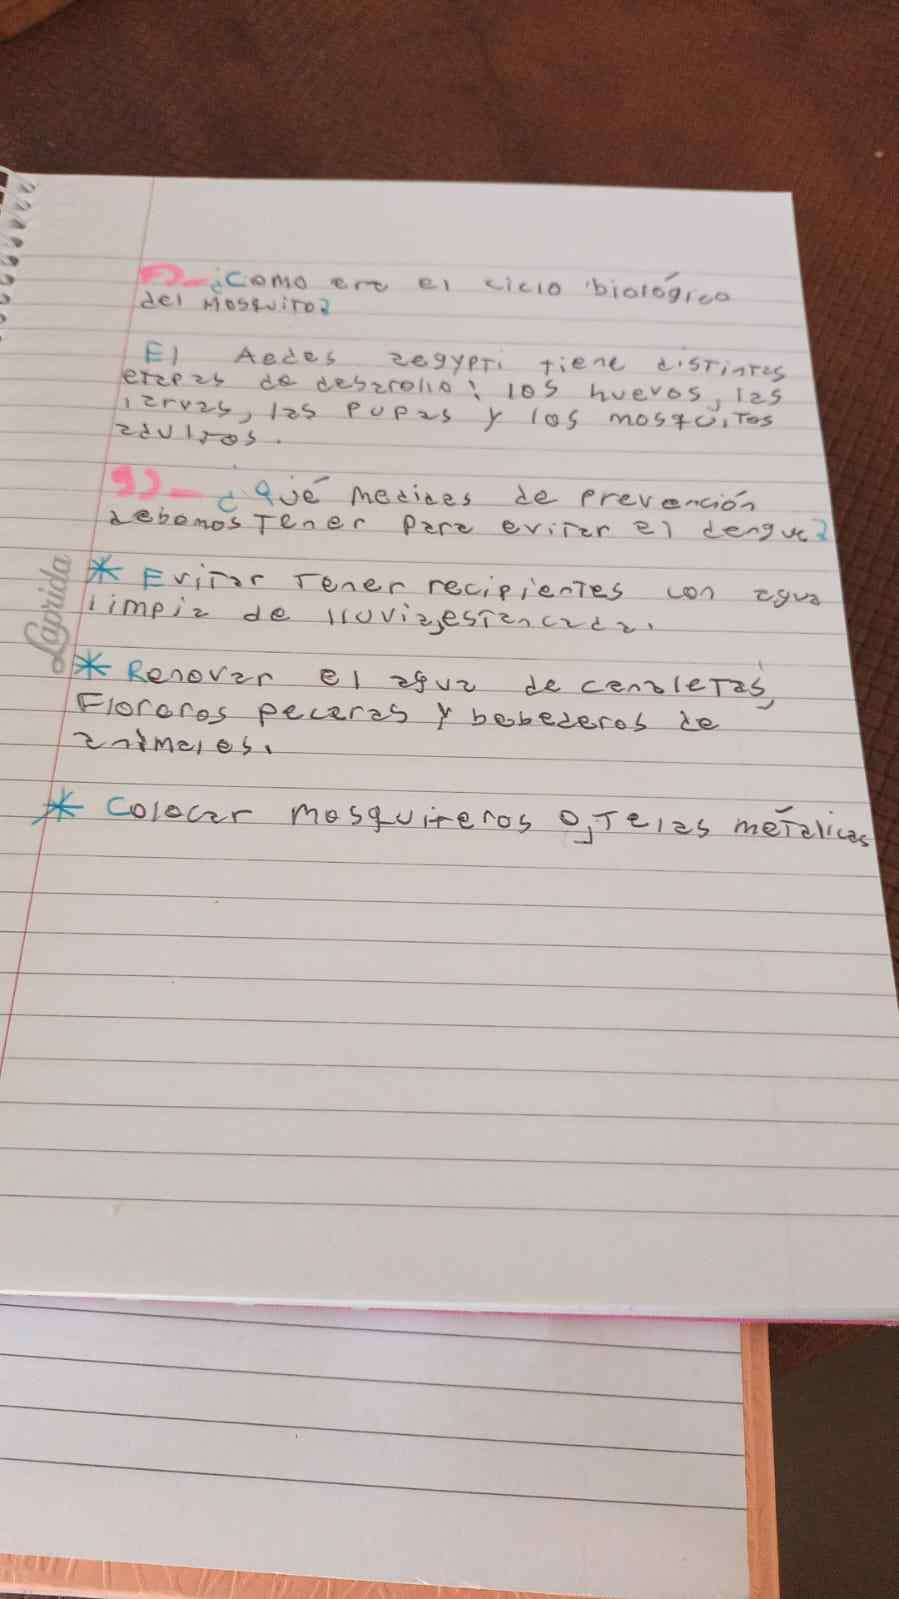 F)-¿Como era el ciclo biológico
del Mosquito?
El Aedes aegypti tiene distintas
etapas de desarollo: los huevos, las
larvas, las pupas y los mosquitos
adultos.
g)- ¿Qué medidas de prevención
debemos Tener para evitar el dengue?
* Evitar Tener recipientes con agua
limpia de lluvia, estancada.
* Renovar el agua de canaletas,
Floreros peceras y bebederos de
animales.
* Colocar mosquiteros o, Telas metálicas
Laprida